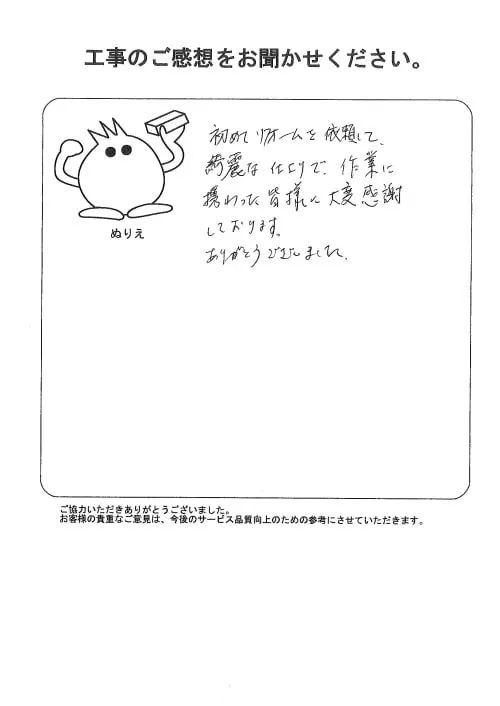 工事のご感想をお聞かせください。
初めてリフォームを依頼して、
綺麗な仕上りで、作業に
携わった皆様に大変感謝
しております。
ありがとうございました。
ぬりえ
ご協力いただきありがとうございました。
お客様の貴重なご意見は、今後のサービス品質向上のための参考にさせていただきます。